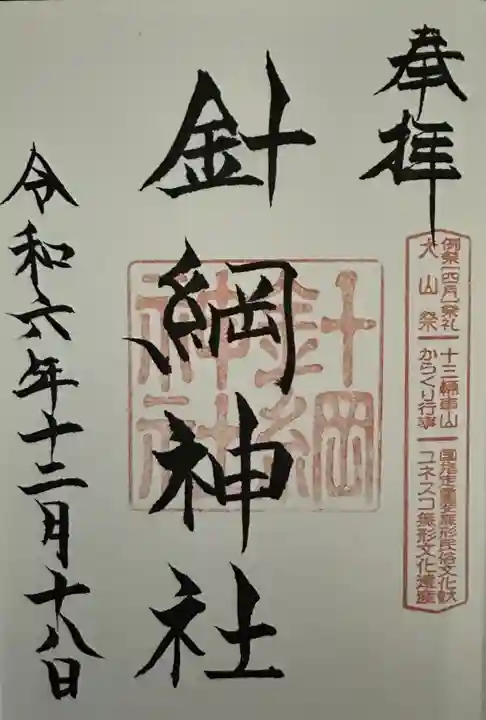 奉拝
例祭[四月]祭礼 十三輛車山 国指定重要無形民俗文化財
犬山祭 からくり行事 ユネスコ無形文化遺産
針綱神社
針綱神社
令和六年十二月十八日